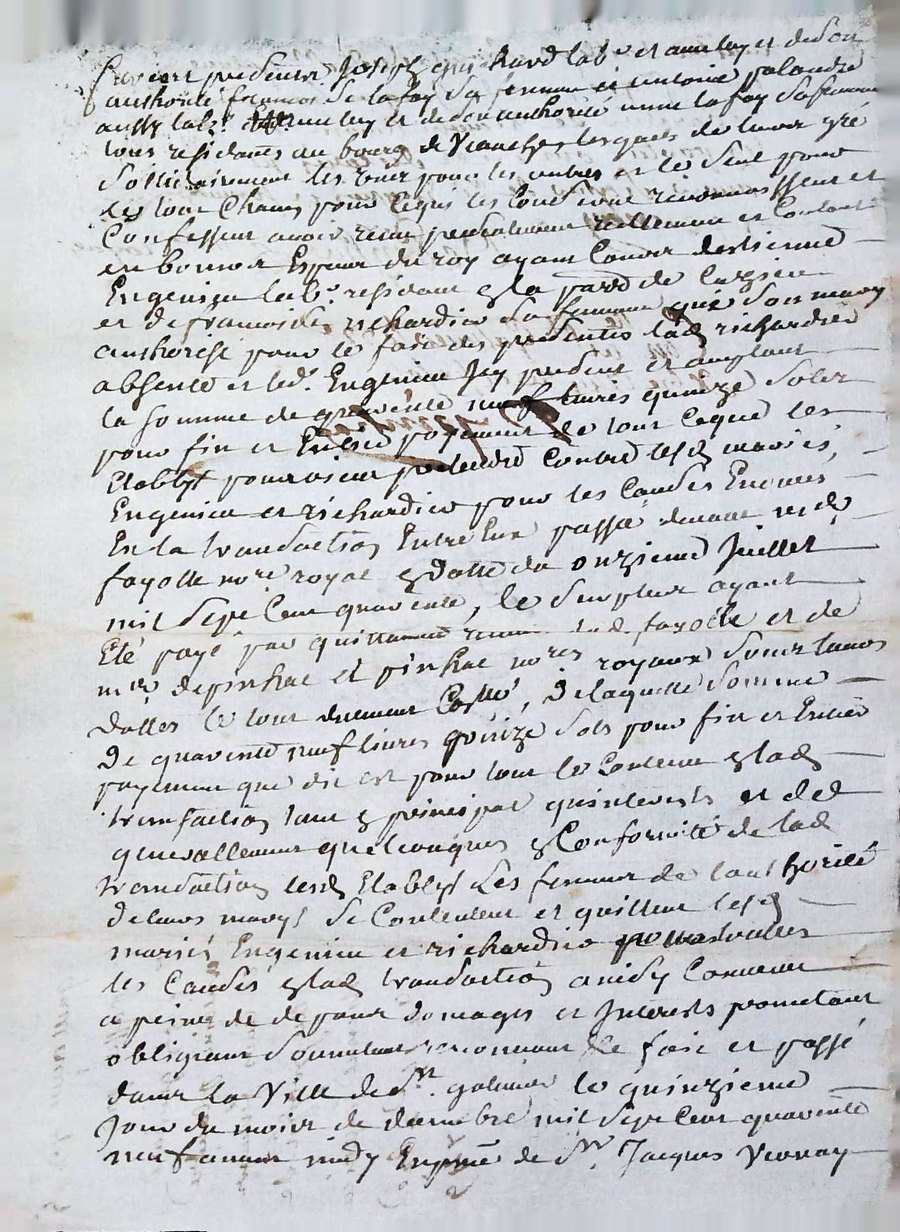 furent presents Joseph guichard lab.r et avec luy et de son
authorité francoise de la fay sa femme et antoine palandre
aussy lab.r avec luy et de son authorité anne la fay sa femme
tous residants au bourg de Veauches lesquels de leur gré
solidairement les uns pour les autres et le seul pour
le tout
Confessent avoir receu presentement reellement et Contant
en bonnes Espece du roy ayant Cours destienne
Engenieu lab.r resident la parr de
et de francoise richardier sa femme son mary
authorisé pour le fait des presentes lad richardier
absente et led. Engenieu Icy present et acceptant
la somme de quarente neuf livres quinze sols
pour fin et Entier payement de tout Ceque les
Etablys pourroient pretendre Contre lesd mariés
Engenieu et richardier pour les Causes Enoncés
En la transaction Entre Eux passé devant me de
fayolle no.re royal datte du onzieme Juillet
mil sept Cent quarente, le surplus ayant
Eté payé par quittances receues lad. fayolle et de
m.re depinhac et pinhac no.res royaux sous leurs
dattes le tout duement Collé, de laquelle somme
De quarente neuf livres quinze sols pour fin et Entier
payement que dit est pour tout le Contenu lad
transaction tant principal qu'interests et
generallement quelconques Conformité de lad
transaction lesd Etablys les femmes de l'authorité
de leurs marys se Contentent et quittent lesd
mariés Engenieu et richardier
les Causes lad transaction
a peine de de pans domages et Interests promettant
obligeant soumettant renoncant fait et passé
dans la Ville de S.t galmier le quinzieme
Jour du mois de decembre mil sept Cent quarente
neuf avant midy En p.nce de S.r Jacques Vernay